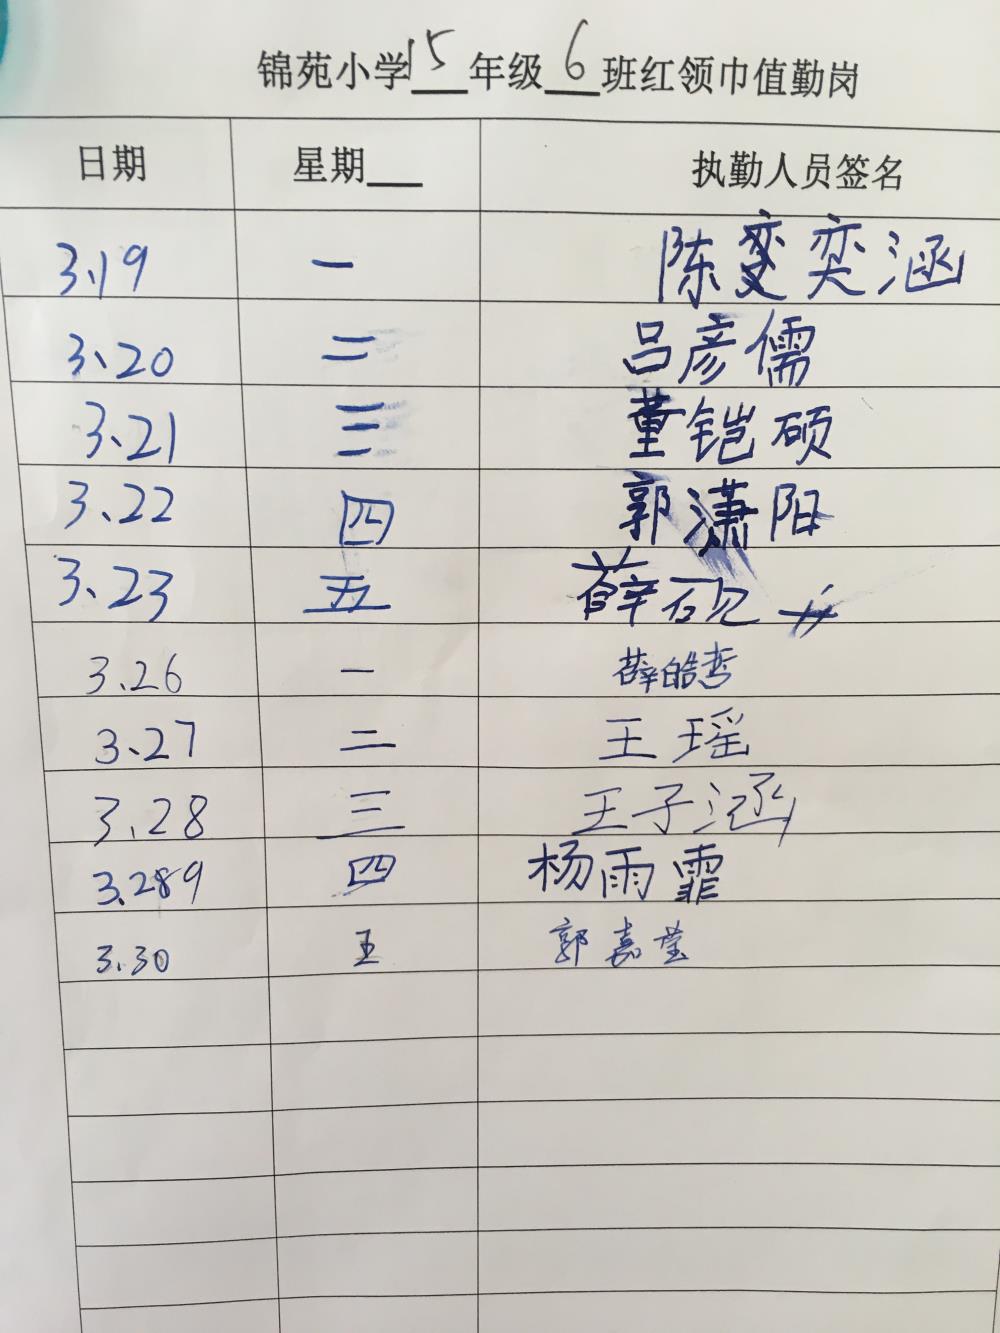 锦苑小学15年级6班红领巾值勤岗
日期 星期 执勤人员签名
3.19 一 陈奕涵
3.20 二 吕彦儒
3.21 三 董铠硕
3.22 四 郭潇阳
3.23 五 薛砚
3.26 一 薛皓哲
3.27 二 王瑶
3.28 三 王子涵
3.29 四 杨雨霏
3.30 五 郭嘉莹